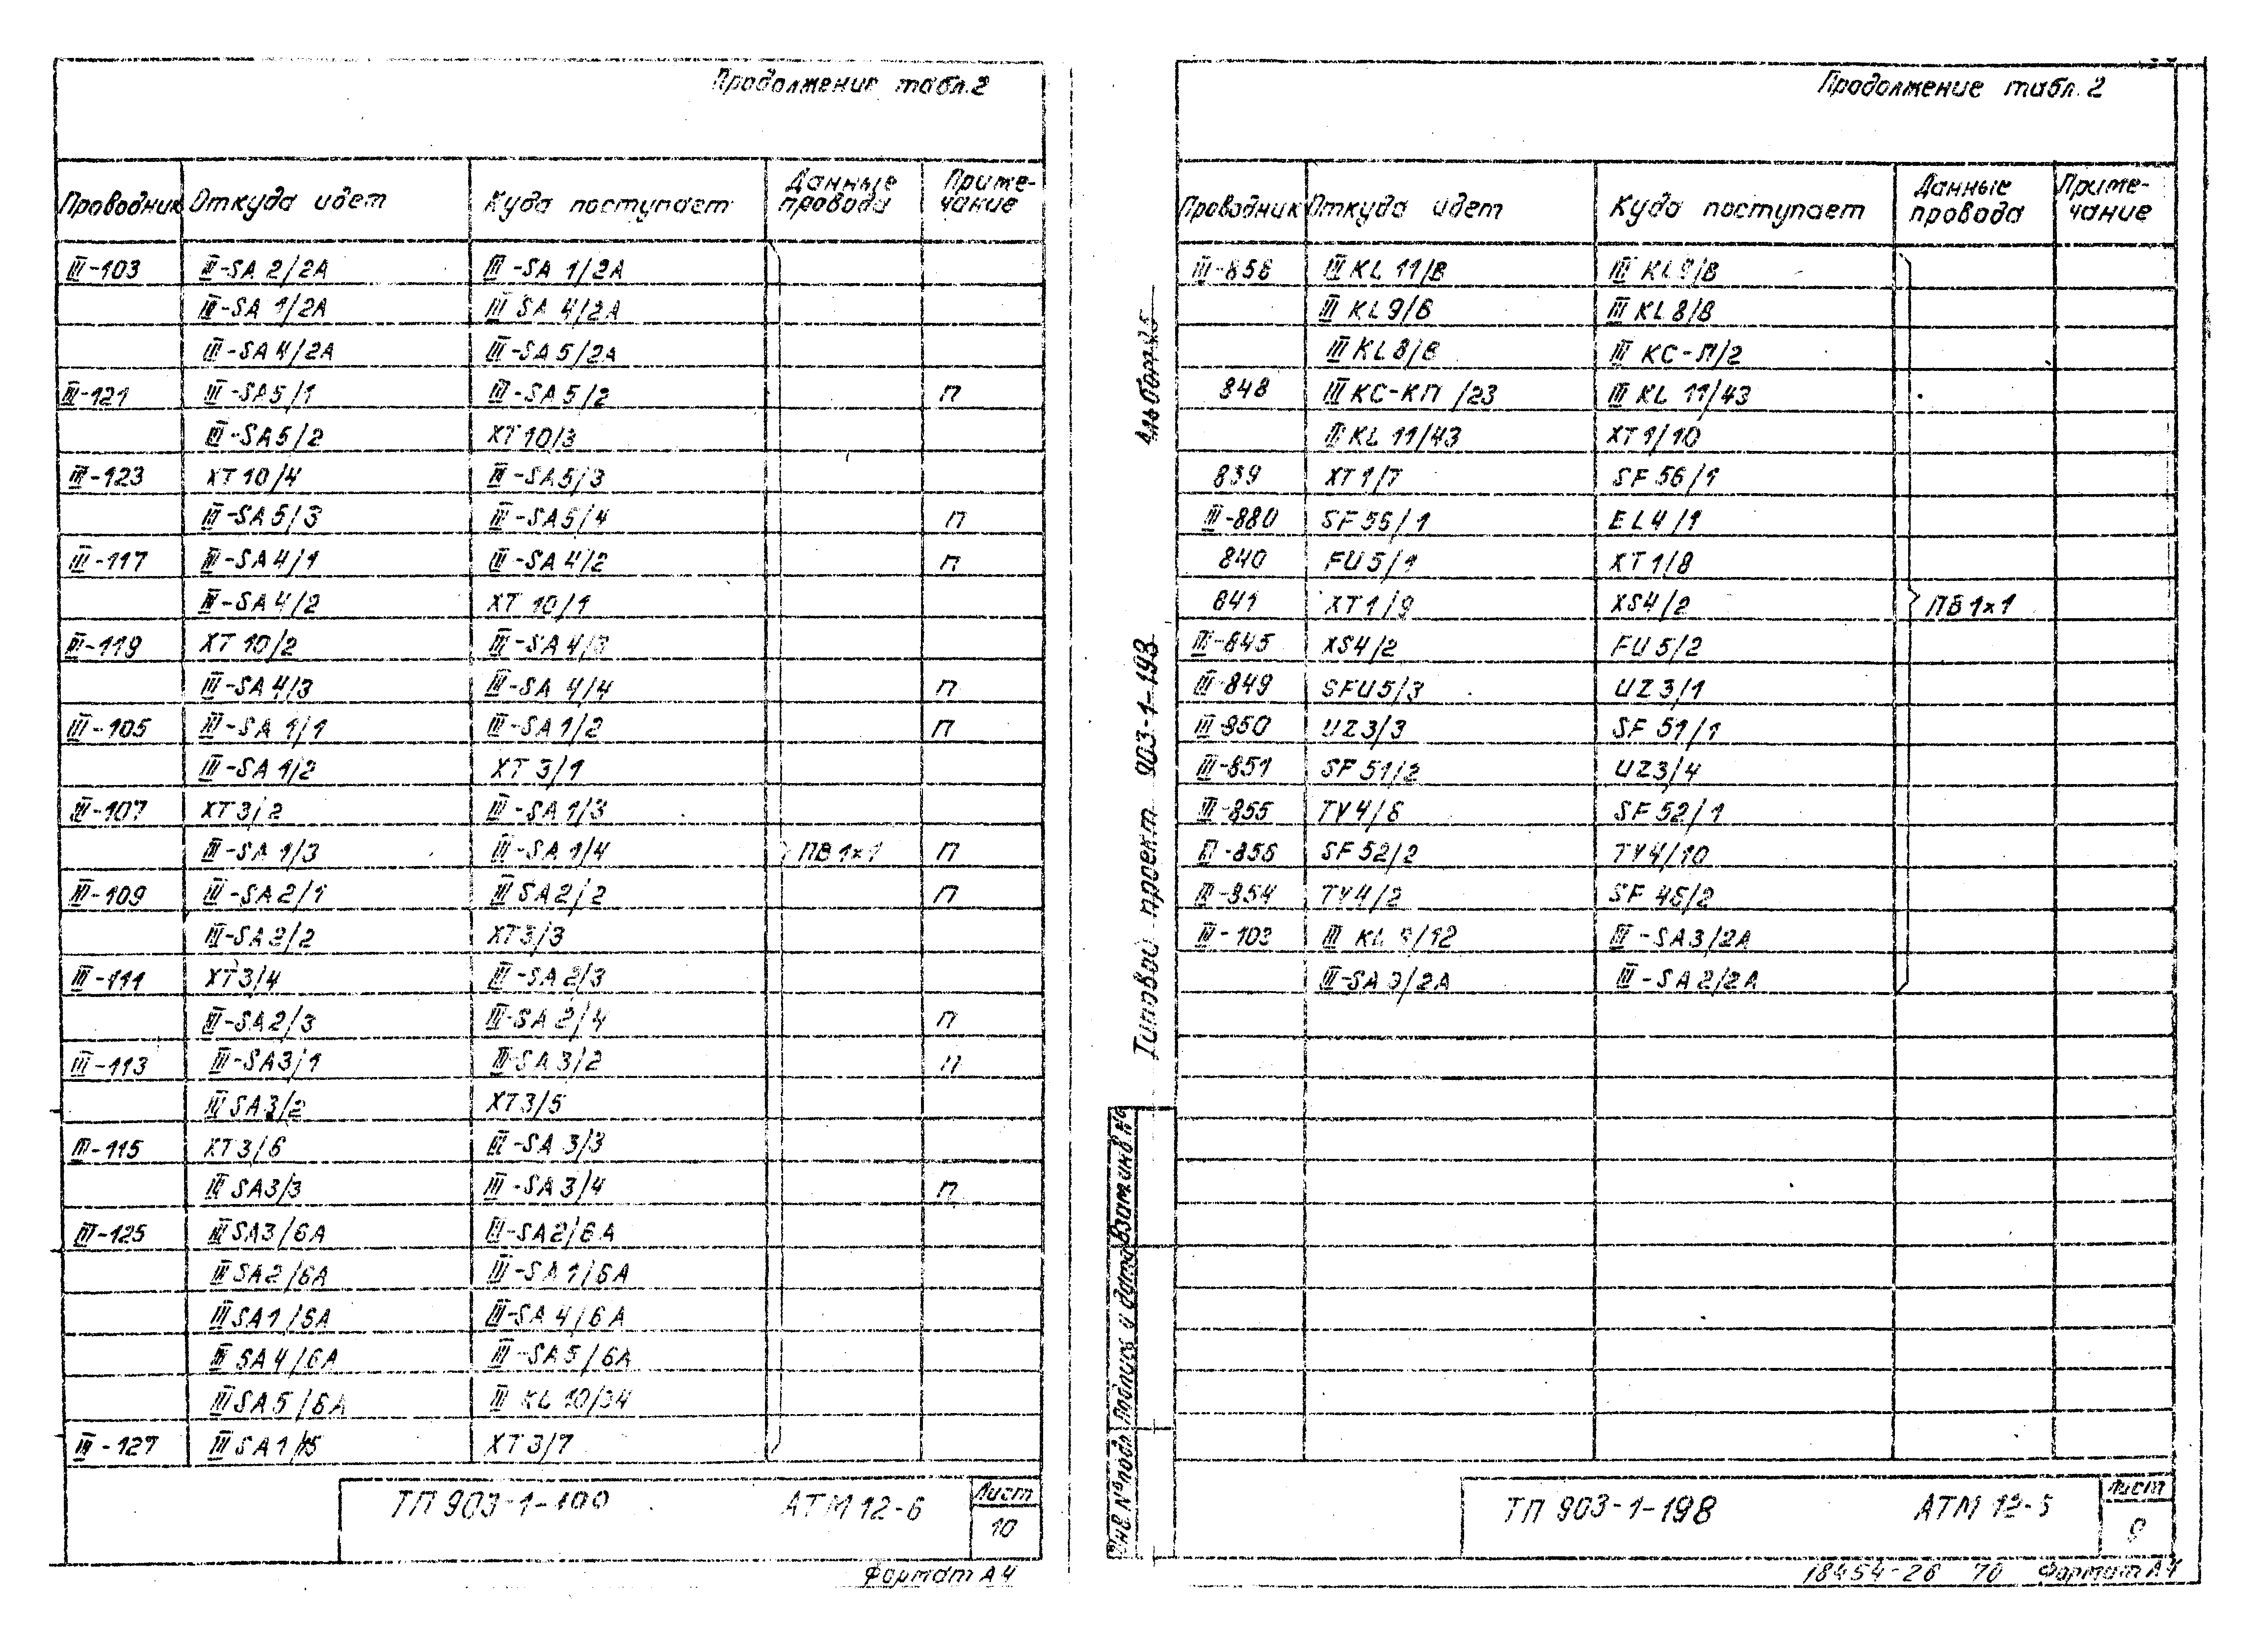 Продолжение табл.2
Проводник Откуда идет Куда поступает Данные провода Приме-чание
III-103 III-SA 2/2A III-SA 1/2A
III-SA 1/2A III SA 4/2A
III-SA 4/2A III-SA 5/2A
III-121 III-SA5/1 III-SA5/2 П
III-SA5/2 XT10/3
III-123 XT10/4 III-SA5/3
III-SA5/3 III-SA5/4 П
III-117 III-SA4/1 III-SA4/2 П
III-SA4/2 XT 10/1
III-119 XT 10/2 III-SA 4/3
III-SA 4/3 III-SA 4/4 П
III-105 III-SA 1/1 III-SA1/2 П
III-SA 1/2 XT 3/1
III-107 XT3/2 III-SA1/3
III-SA 1/3 III-SA 1/4 ПВ1×1 П
III-109 III-SA2/1 III SA2/2 П
III-SA2/2 XT3/3
III-111 XT3/4 III-SA2/3
III-SA2/3 III-SA 2/4 П
III-113 III-SA3/1 III-SA3/2 П
III SA3/2 XT3/5
III-115 XT3/6 III-SA 3/3
III SA3/3 III-SA3/4 П
III-125 III SA3/6A III-SA2/6A
III SA2/6A III-SA1/6A
III SA1/6A III-SA 4/6A
III SA4/6A III-SA5/6A
III SA5/6A III KL 10/34
III-127 III SA1/15 XT3/7
ТП 903-1- АТМ 12-6 Лист
10
Формат А4
Продолжение табл.2
Проводник Откуда идет Куда поступает Данные провода Приме-чание
III-858 III KL 11/В III KL9/В
III KL9/В III KL8/В
III KL8/В III КС-П/2
848 III КС-КП/23 III KL 11/43
III KL 11/43 XT1/10
839 XT1/7 SF56/1
III-880 SF55/1 EL4/1
840 FU5/1 XT1/8
841 XT1/9 XS4/2 ПВ1×1
III-845 XS4/2 FU5/2
III-849 SFU5/3 UZ3/1
III-850 UZ3/3 SF51/1
III-851 SF51/2 UZ3/4
III-855 TV4/6 SF52/1
III-856 SF52/2 TV4/10
III-854 TV4/2 SF 45/2
III-103 III KL 9/12 III-SA3/2A
III-SA3/2A III-SA2/2A
ТП 903-1-198 АТМ 12-5 Лист
9
18454-26 70 Формат А4
Типовой проект 903-1-198 Альбом
Инв.№подл. Подпись и дата Взам.инв.№